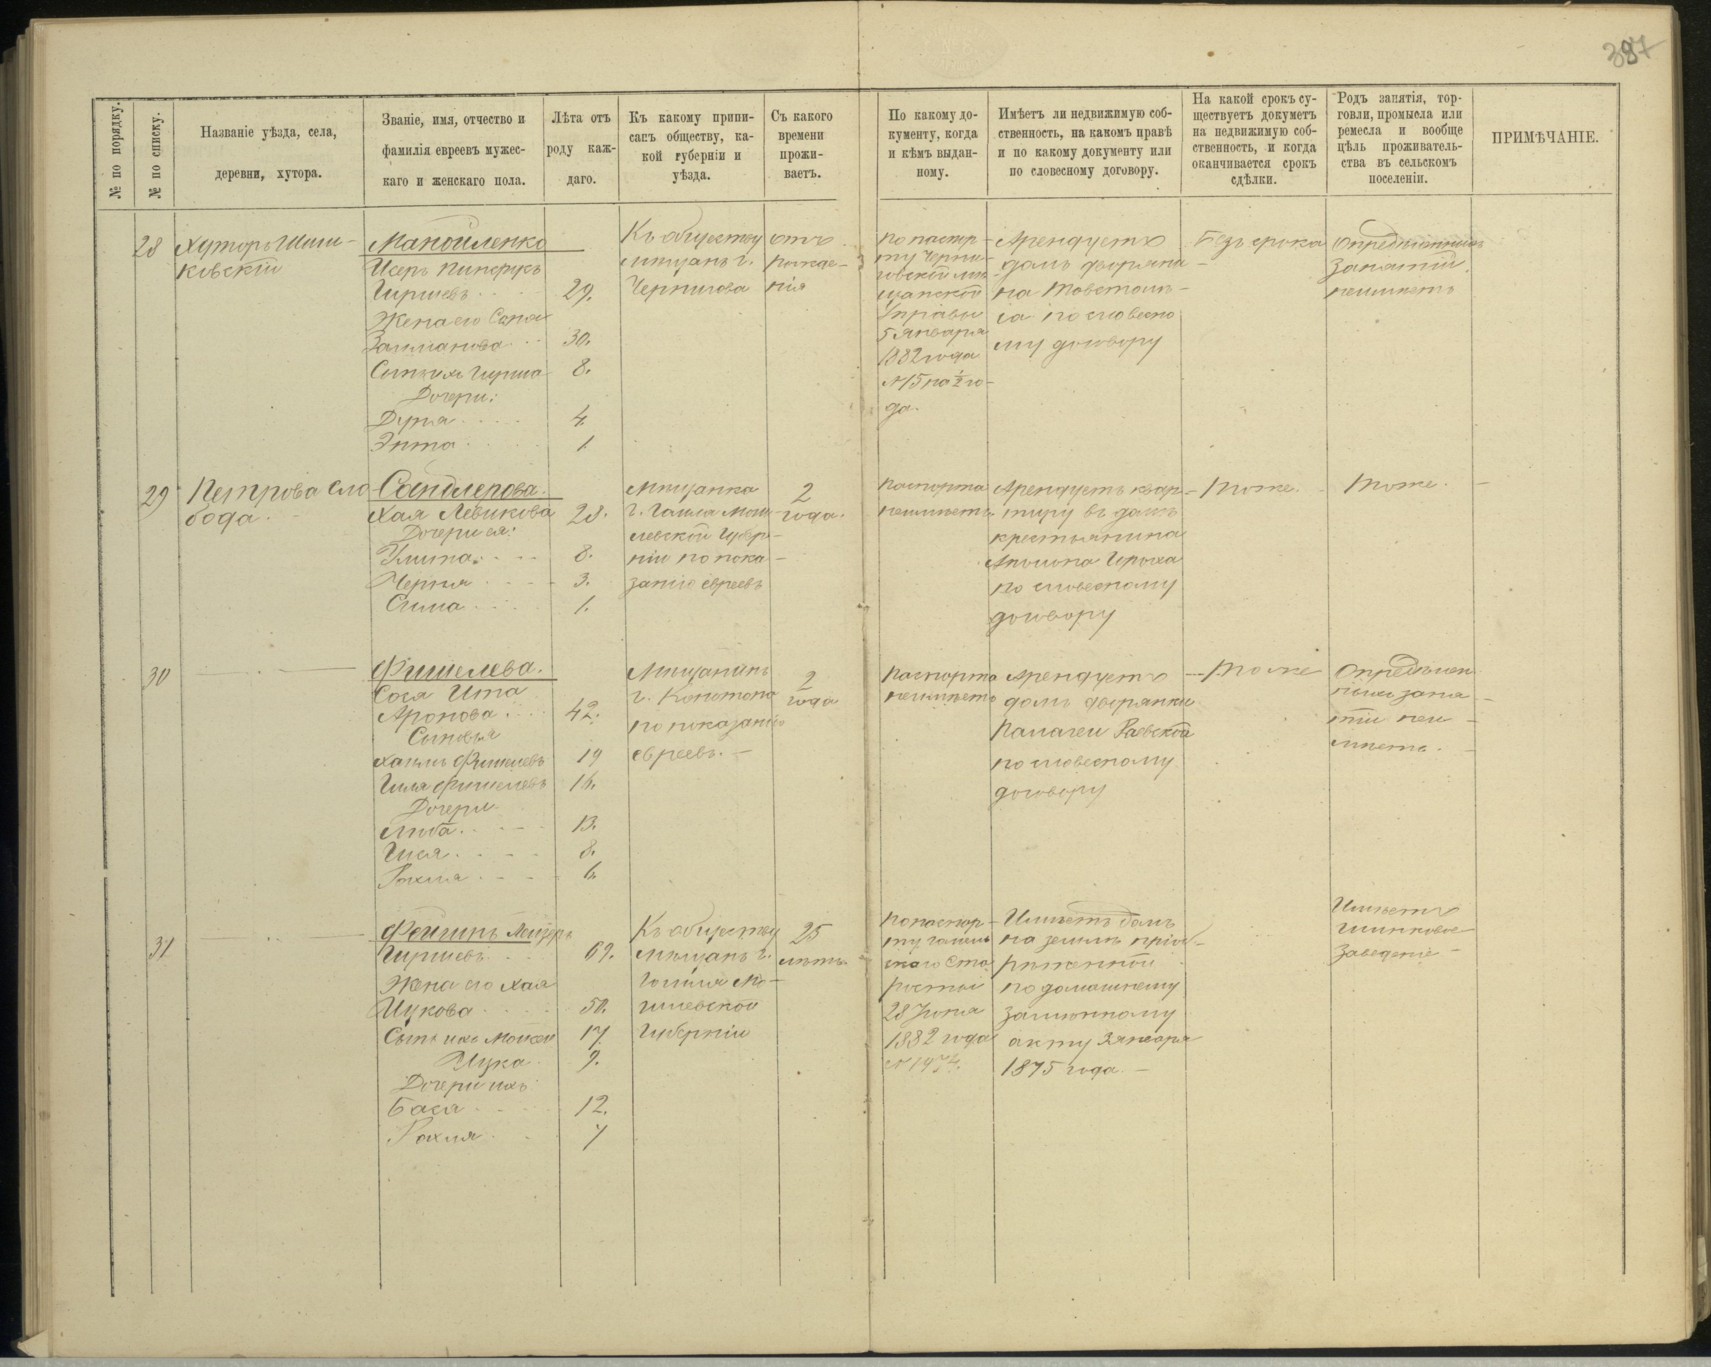 387
№ по порядку.
№ по списку.
Названіе уѣзда, села,
деревни, хутора.
Званіе, имя, отчество и
фамилія евреевъ мужес-
каго и женскаго пола.
Лѣта отъ
роду каж-
даго.
Къ какому припи-
санъ обществу, ка-
кой губерніи и
уѣзда.
Съ какого
времени
прожи-
ваетъ.
По какому до-
кументу, когда
и кѣмъ выдан-
ному.
Имѣетъ ли недвижимую соб-
ственность, на какомъ правѣ
и по какому документу или
по словесному договору.
На какой срокъ су-
ществуетъ документъ
на недвижимую соб-
ственность, и когда
оканчивается срокъ
сдѣлки.
Родъ занятія, тор-
говли, промысла или
ремесла и вообще
цѣль проживатель-
ства въ сельскомъ
поселеніи.
ПРИМѢЧАНІЕ.
28
Хуторъ
ковскій
Манойленко
Гиршевъ
29.
Жена его
Залманова
30.
Сынъ ихъ Гирша
8.
Дочери:
4.
1
Къ обществу
мѣщанъ г.
Чернигова
отъ
рожде-
нія
По паспор-
ту Черни-
говской мѣ-
щанской
Управы
5 января
1882 года
№15 на ½ го-
да.
Арендуетъ
домъ дворяни-
на
са по словесно
му договору
Безъ срока
Опредѣленныхъ
занятій
неимѣетъ
29
Петрова Сло
бода.
Сандлерова.
Хая Левикова
28.
Дочери ея:
Улита
8.
Черня
3.
Сима
1.
Мѣщанка
г. Гомля Моги-
левской Губер-
ніи по пока-
занію евреевъ
2
года.
Паспорта
неимѣетъ.
Арендуетъ квар-
тиру въ домѣ
крестьянина
по словесному
договору
Тоже.
Тоже.
30
Фишелева.
Сося Ита
Аронова
42.
Сыновья
Хаимъ Фишелевъ
19
Гиля Фишелевъ
16.
Дочери
Либа
13.
Гися
8.
Рахля
6
Мѣщанинъ
г. Конотопа
по показанію
евреевъ.
2
года
Паспорта
неимѣетъ
Арендуетъ
домъ дворянки
Палагеи Раевской
по словесному
договору
Тоже
Опредѣлен
ныхъ заня
тій неи
мѣетъ.
31
Фейгинъ Лейзеръ
Гиршевъ
69.
Жена его Хая
Ицкова
50.
Сынъ ихъ Моисей
17
Ицка
9.
Дочери ихъ
Бася
12.
Рахля
7
Къ обществу
мѣщанъ г.
Гомля Мо-
гилевской
Губерніи
25
лѣтъ
По паспор-
ту Гомель
скаго Ста
росты
28 Іюня
1882 года
Имѣетъ домъ
на землѣ пріоб-
рѣтенной
по домашнему
законному
акту 2 января
1875 года
Имѣетъ
шинковое
заведеніе